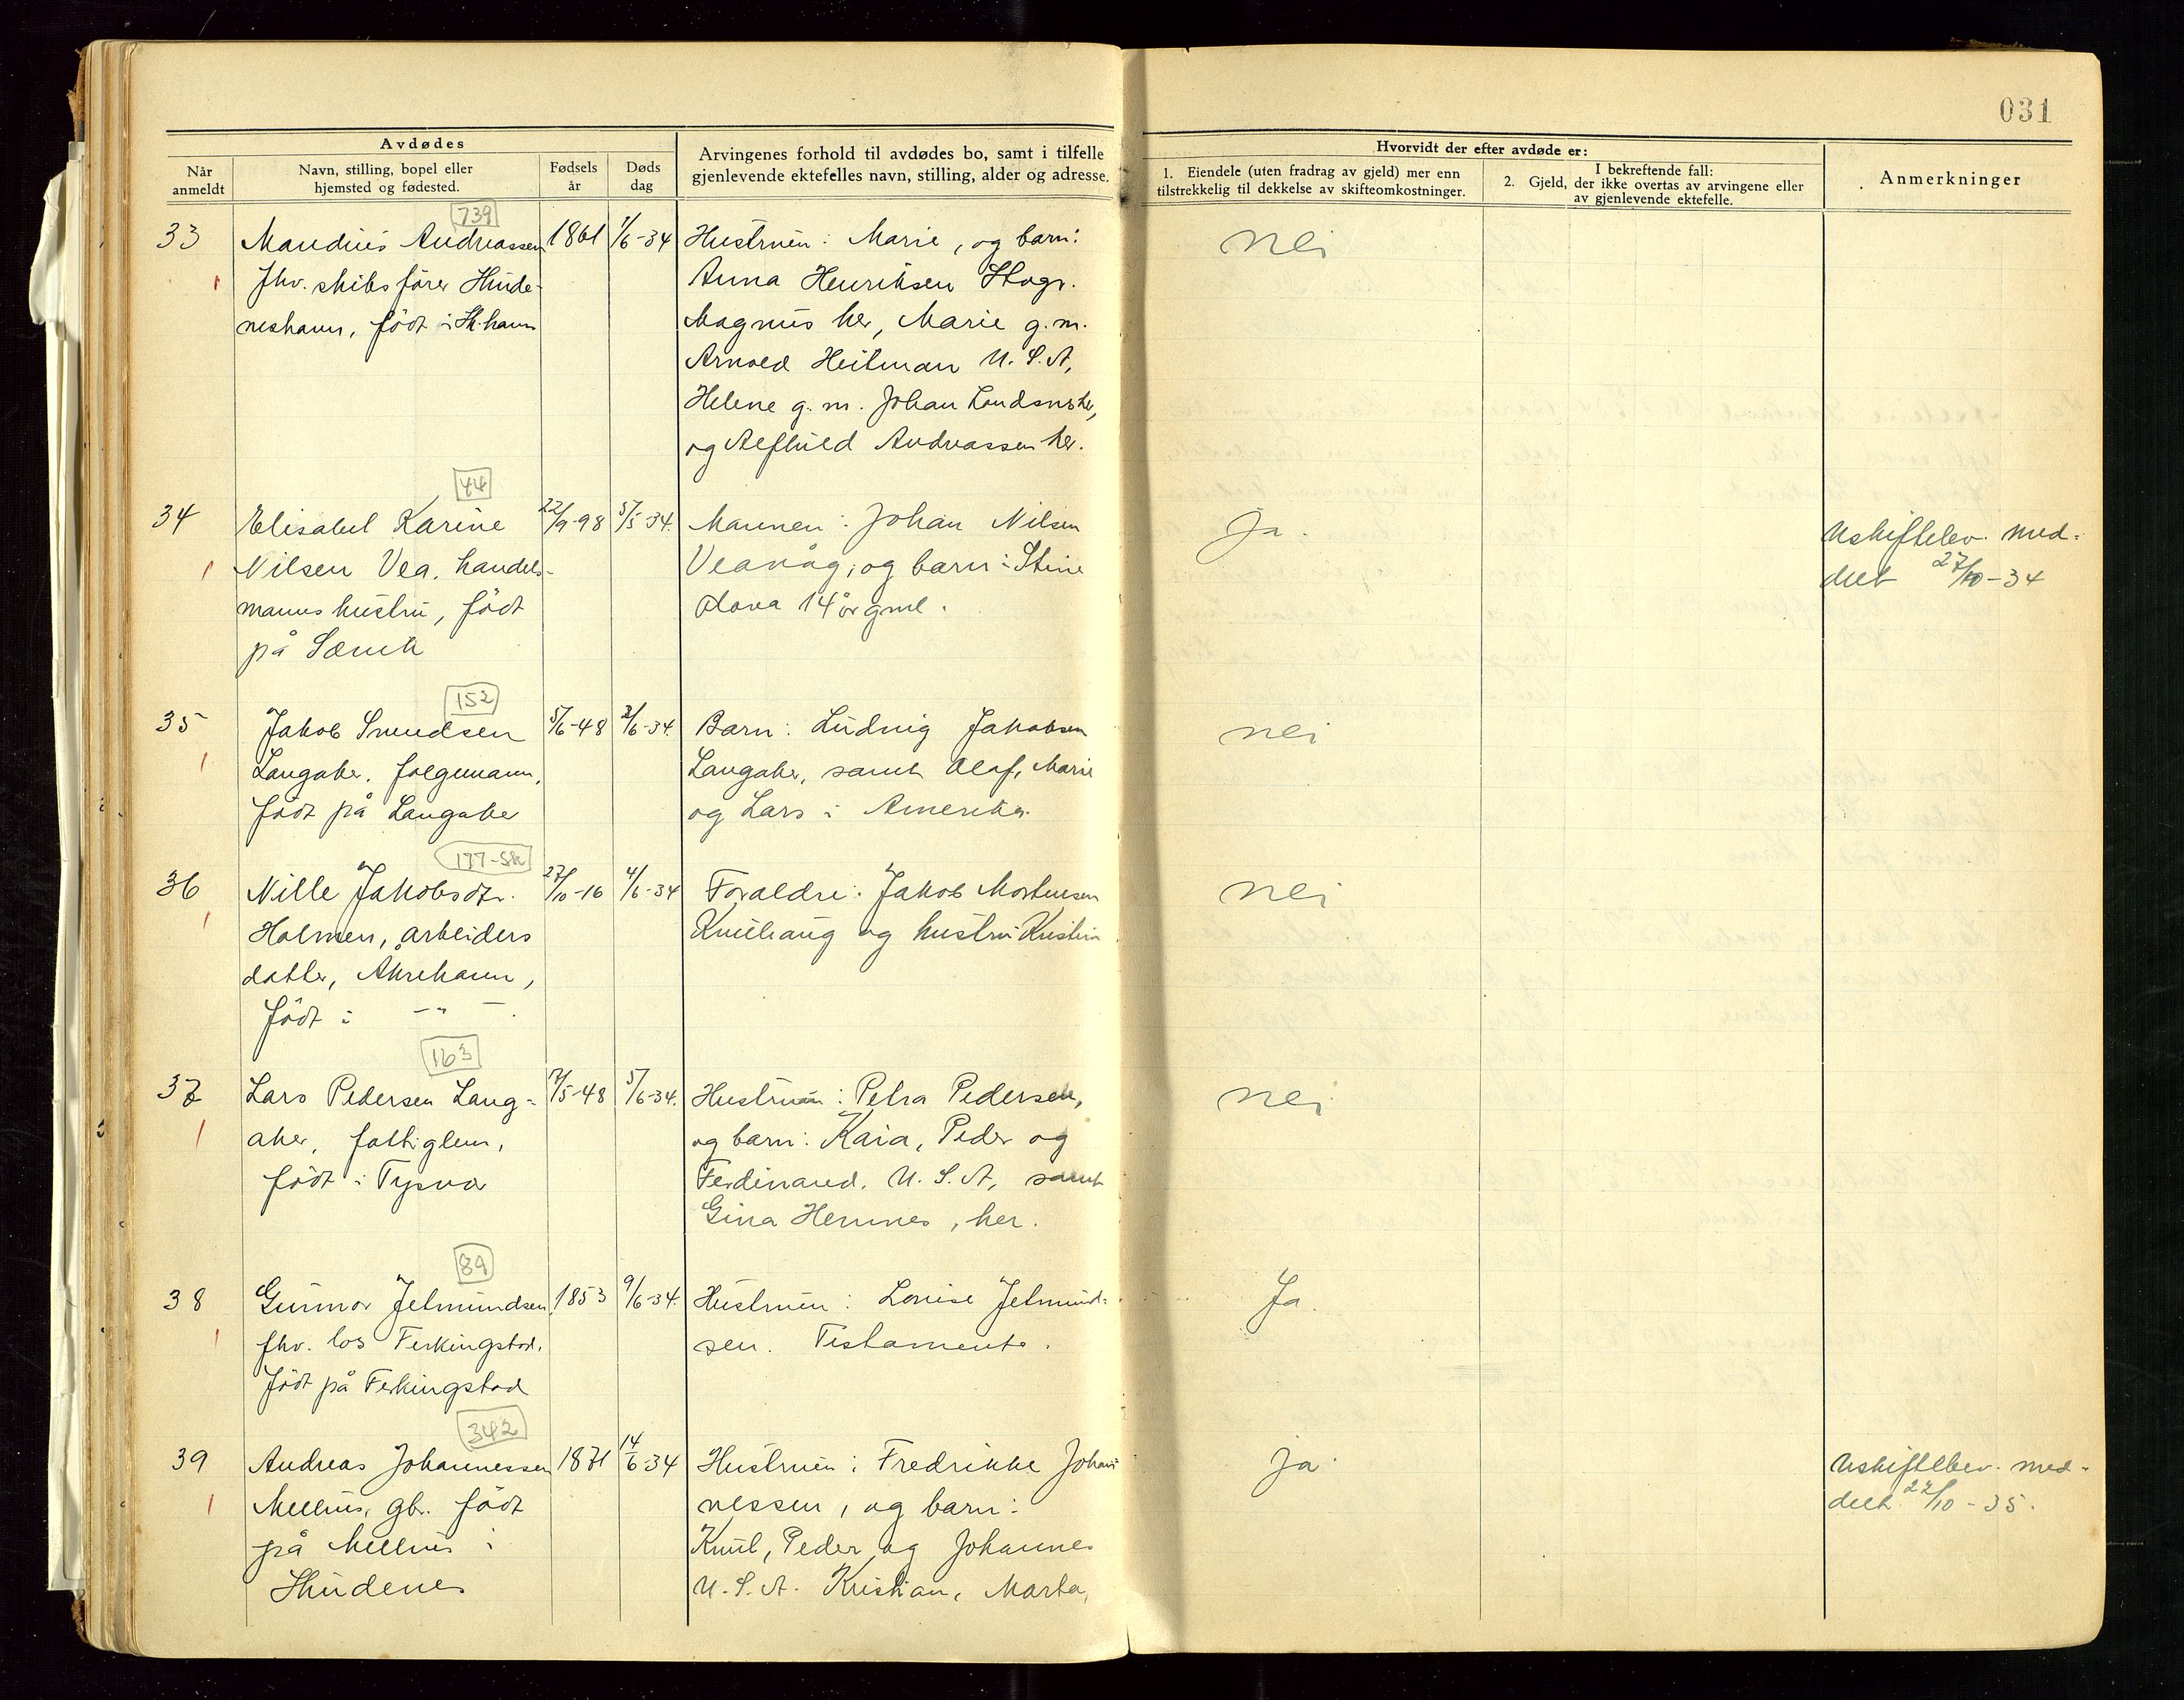 031
Avdødes
Når anmeldt
Navn, stilling, bopel eller hjemsted og fødested.
Fødsels år
Døds dag
Arvingenes forhold til avdødes bo, samt i tilfelle gjenlevende ektefelles navn, stilling, alder og adresse.
Hvorvidt der efter avdøde er:
1. Eiendele (uten fradrag av gjeld) mer enn tilstrekkelig til dekkelse av skifteomkostninger.
I bekreftende fall:
2. Gjeld, der ikke overtas av arvingene eller av gjenlevende ektefelle.
Anmerkninger
739
33 Maudius Andreassen 1861 1/6-34 Hustruen: Marie, og barn: nei
fhv. skibsfører Skude- Anna Henriksen Skogs.
neshavn, født i Sk.havn Magnus her, Marie g.m.
Arnold Heitman U.S.A,
Helene g.m. Johan Landsnes her,
og Alfhild Andreassen her.
44
34 Elisabet Karine 22/9-98 5/5-34. Mannen: Johan Nilsen ja. Uskiftebev. med-
Nilsen Vea. handels- Veavåg, og barn: Stine delt 27/10-34
manns hustru, født Olava 14 år gml.
på Sævik
152
35 Jakob Svendsen 5/6-48 2/6-34. Barn: Ludvig Jakobsen nei
Langaker. følgemann, Langaker, samt Olaf, Marie
født på Langaker og Lars i Amerika.
177-Sk
36 Nille Jakobsdtr. 27/10-16 4/6-34 Foraldre: Jakob Mortensen nei
Holmen, arbeiders Knuthaug og hustru Kristine
datter, Åkrehavn,
født i -"-
163
37 Lars Pedersen Lang- 17/5-48 5/6-34. Hustruen: Petra Pedersen, nei
aker, fattiglem, og barn: Kaia, Peder og
født i Tysvær Ferdinand. U.S.A, samt
Gina Hemnes, her.
89
38 Gunnar Jelmundsen 1853 9/6-34. Hustruen: Lovise Jelmund- Ja.
fhv. los Ferkingstad. sen. Testamente.
født på Ferkingstad
342
39 Andreas Johannessen 1871 14/6-34 Hustruen: Fredrikke Johan- ja. Uskiftebev. med-
Mellus, gb. født nessen, og barn: delt 22/10-35.
på Mellus i Knut, Peder og Johannes
Skudenes U.S.A. Kristian, Marta,